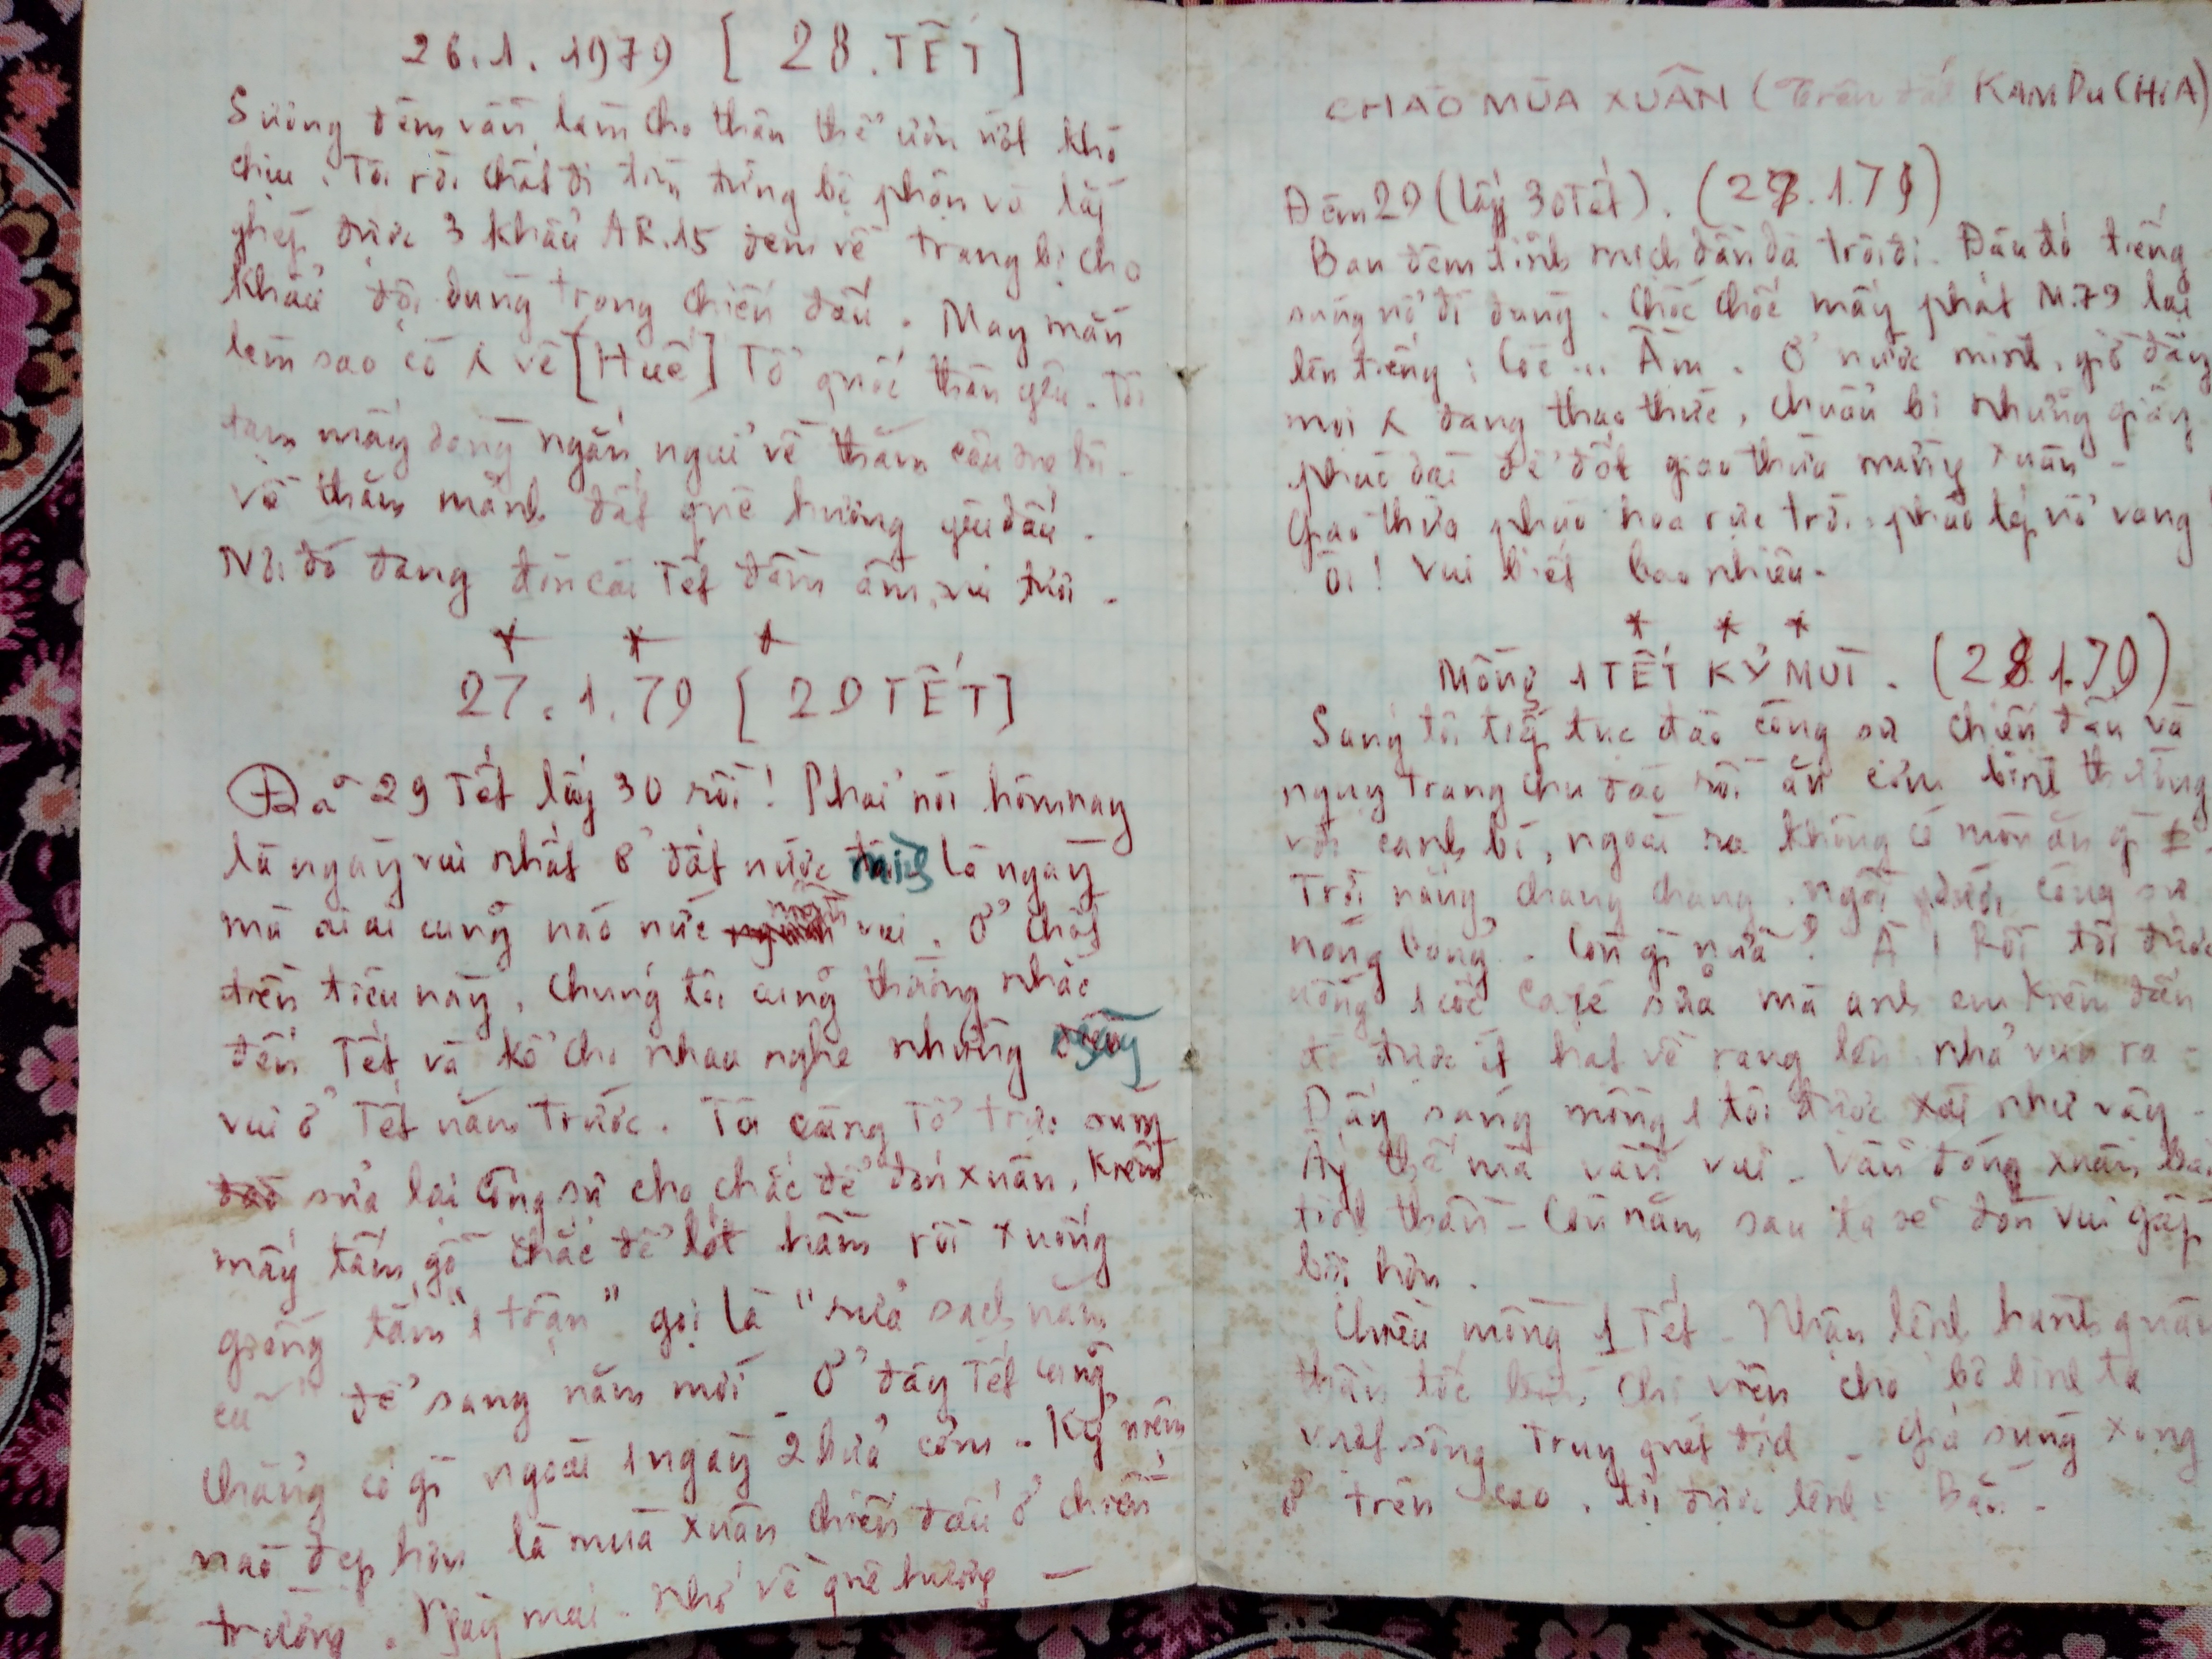 26.1.1979 [ 28.TẾT ]
Sương đêm vẫn làm cho thân thể ướt khó
chịu. Tôi rời chốt đi tìm từng bộ phận và lắp
ghép được 3 khẩu AR.15 đem về trang bị cho
khẩu đội dùng trong chiến đấu. May mắn
làm sao có x về [Huế] Tổ quốc thân yêu. Tôi
tạm mấy dòng ngắn ngủi về thăm
Về thăm mảnh đất quê hương yêu dấu.
Nơi đó đang đón cái Tết đầm ấm, vui tươi.
* * *
27.1.79 [ 29 TẾT ]
Đã 29 Tết lấy 30 rồi! Phải nói hôm nay
là ngày vui nhất ở đất nước mình là ngày
mà ai ai cũng náo nức vui. Ở chốt
tiền tiêu này, chúng tôi cũng thường nhắc
đến Tết và kể cho nhau nghe những ngày
vui ở Tết năm trước. Tôi cùng Tổ trực súng
sửa lại công sự cho chắc để đón xuân, kiếm
mấy tấm gỗ chắc để lót hầm rồi xuống
giếng tắm "1 trận" gọi là "rửa sạch năm
cũ" để sang năm mới. Ở đây Tết cũng
chẳng có gì ngoài 1 ngày 2 bữa cơm. Kỷ niệm
nào đẹp hơn là mùa xuân chiến đấu ở chiến
trường. Ngày mai. Nhớ về quê hương —
CHÀO MÙA XUÂN (Trên đất KAMPUCHIA)
Đêm 29 (lấy 30 Tết). (27.1.79)
Ban đêm tĩnh mịch dần dà trôi đi. Đâu đó tiếng
súng nổ đì đùng. Chốc chốc mấy phát M.79 lại
lên tiếng: Cốc... Ầm. Ở nước mình, giờ đây
mọi x đang thao thức, chuẩn bị những giây
pháo dài để đốt giao thừa mừng xuân.
Giao thừa pháo hoa rực trời, pháo tép nổ vang
Ôi! Vui biết bao nhiêu.
* * *
MỒNG 1 TẾT KỶ MÙI. (28.1.79)
Sáng tôi tiếp tục đào công sự chiến đấu và
ngụy trang chu đáo rồi ăn cơm bình thường
với canh bí, ngoài ra không có món ăn gì
Trời nắng chang chang. ngồi dưới công sự
nóng bỏng. Còn gì nữa? À! Rồi tôi được
uống 1 cốc Cafê sữa mà anh em kiếm đâu
đó được ít hạt về rang lên nhá vụn ra.
Đấy sáng mồng 1 tôi được xài như vậy.
Ấy thế mà vẫn vui. Vẫn đón xuân
tinh thần. Còn năm sau ta sẽ đón vui gấp
bội hơn.
Chiều mồng 1 Tết. Nhận lệnh hành quân
thần tốc chi viện cho bộ binh ta
vượt sông truy quét địch. Giá súng xong
ở trên cao, tôi được lệnh: Bắn.